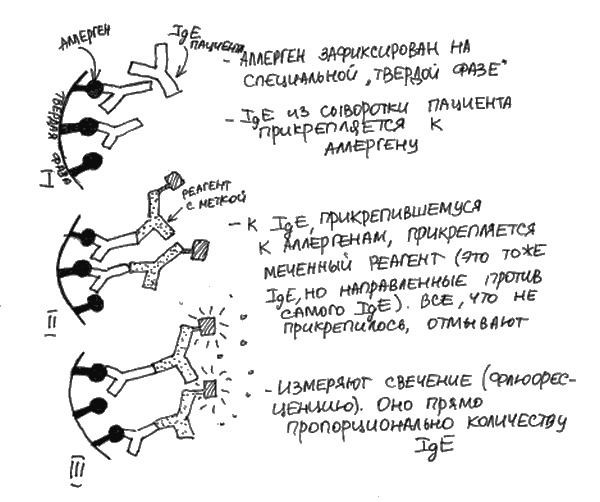 АЛЛЕРГЕН
IgE
ПАЦИЕНТА
- АЛЛЕРГЕН ЗАФИКСИРОВАН НА
СПЕЦИАЛЬНОЙ „ТВЕРДОЙ ФАЗЕ"
ТВЕРДАЯ ФАЗА
- IgE ИЗ СЫВОРОТКИ ПАЦИЕНТА
ПРИКРЕПЛЯЕТСЯ К
АЛЛЕРГЕНУ
I
РЕАГЕНТ
С МЕТКОЙ
- К IgE, ПРИКРЕПИВШЕМУСЯ
К АЛЛЕРГЕНАМ, ПРИКРЕПЛЯЕТСЯ
МЕЧЕННЫЙ РЕАГЕНТ (ЭТО ТОЖЕ
IgE, НО НАПРАВЛЕННЫЕ ПРОТИВ
САМОГО IgE). ВСЕ, ЧТО НЕ
ПРИКРЕПИЛОСЬ, ОТМЫВАЮТ
II
- ИЗМЕРЯЮТ СВЕЧЕНИЕ (ФЛЮОРЕС-
ЦЕНЦИЮ). ОНО ПРЯМО
ПРОПОРЦИОНАЛЬНО КОЛИЧЕСТВУ
IgE
III